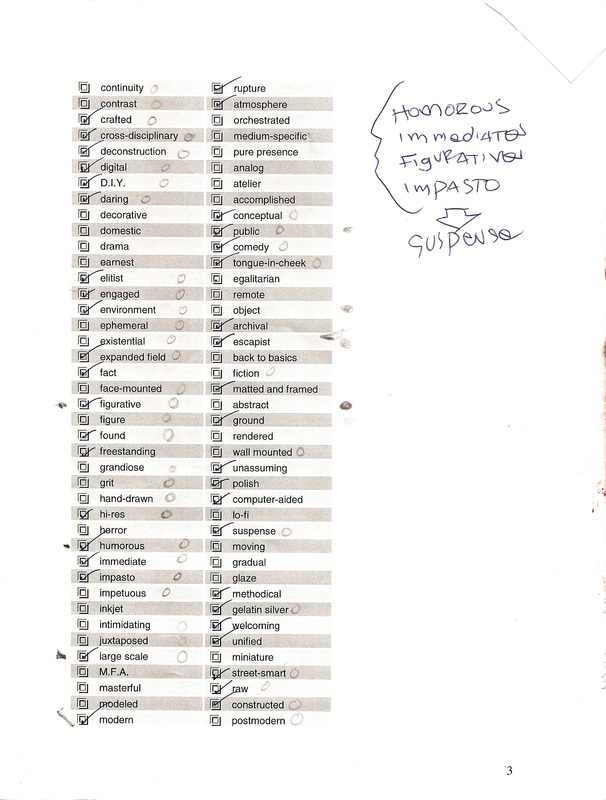 continuity
contrast
crafted
cross-disciplinary
deconstruction
digital
D.I.Y.
daring
decorative
domestic
drama
earnest
elitist
engaged
environment
ephemeral
existential
expanded field
fact
face-mounted
figurative
figure
found
freestanding
grandiose
grit
hand-drawn
hi-res
horror
humorous
immediate
impasto
impetuous
inkjet
intimidating
juxtaposed
large scale
M.F.A.
masterful
modeled
modern
rupture
atmosphere
orchestrated
medium-specific
pure presence
analog
atelier
accomplished
conceptual
public
comedy
tongue-in-cheek
egalitarian
remote
object
archival
escapist
back to basics
fiction
matted and framed
abstract
ground
rendered
wall mounted
unassuming
polish
computer-aided
lo-fi
suspense
moving
gradual
glaze
methodical
gelatin silver
welcoming
unified
miniature
street-smart
raw
constructed
postmodern
HOMOROUS
immediate
FIGURATIVE
IMPASTO
SUSPENSE
3